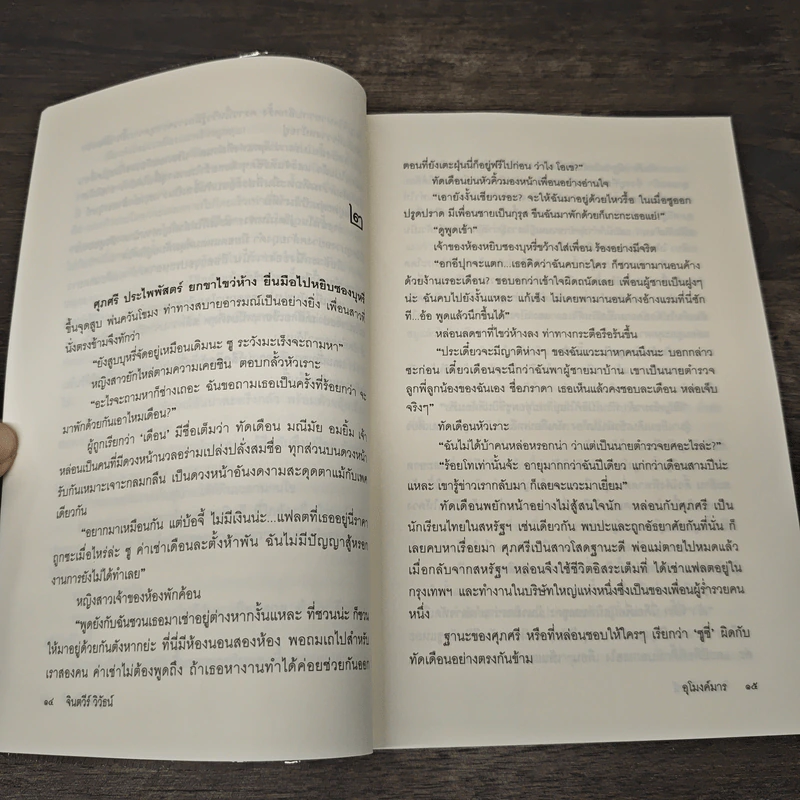 ๒
ศุภศรี ประไพพัสตร์ ยกขาไขว่ห้าง ยื่นมือไปหยิบซองบุหรี่
ขึ้นจุดสูบ พ่นควันโขมง ท่าทางสบายอารมณ์เป็นอย่างยิ่ง เพื่อนสาวที่
นั่งตรงข้ามจึงทักว่า
“ยังสูบบุหรี่จัดอยู่เหมือนเดิมนะ ซู ระวังมะเร็งจะถามหา”
หญิงสาวยักไหล่ตามความเคยชิน ตอบกลั้วหัวเราะ
“อะไรจะถามหาก็ช่างเถอะ ฉันขอถามเธอเป็นครั้งที่ร้อยกว่า จะ
มาพักด้วยกันเอาไหมเดือน?”
ผู้ถูกเรียกว่า ‘เดือน’ มีชื่อเต็มว่า ทัดเดือน มณีมัย อมยิ้ม เจ้า
หล่อนเป็นคนที่มีดวงหน้านวลอร่ามเปล่งปลั่งสมชื่อ ทุกส่วนบนดวงหน้า
รับกันเหมาะเจาะกลมกลืน เป็นดวงหน้าอันงดงามสะดุดตาแม้กับเพศ
เดียวกัน
“อยากมาเหมือนกัน แต่บ้อจี้ ไม่มีเงินน่ะ...แฟลตที่เธออยู่นี่ราคา
ถูกซะเมื่อไหร่ล่ะ ซู ค่าเช่าเดือนละตั้งห้าพัน ฉันไม่มีปัญญาสู้หรอก
งานการยังไม่ได้ทำเลย”
หญิงสาวเจ้าของห้องพักค้อน
“พูดยังกับฉันชวนเธอมาเช่าอยู่ต่างหากงั้นแหละ ที่ชวนน่ะ ก็ชวน
ให้มาอยู่ด้วยกันดังหากย่ะ ที่นี่มีห้องนอนสองห้อง พอถมเถไปสำหรับ
เราสองคน ค่าเช่าไม่ต้องพูดถึง ถ้าเธอหางานทำได้ค่อยช่วยกันออก
๑๔ จินตวีร์ วิวัธน์
ตอนที่ยังเตะฝุ่นนี่ก็อยู่ฟรีไปก่อน ว่าไง โอเช?”
ทัดเดือนย่นหัวคิ้วมองหน้าเพื่อนอย่างอ่านใจ
“เอายังงั้นเชียวเรอะ? จะให้ฉันมาอยู่ด้วยไหวรึ้อ ในเมื่อซูออก
ปรูดปราด มีเพื่อนชายเป็นกุรุส ขืนฉันมาพักด้วยก็เกะกะเธอแย่!”
“ดูพูดเข้า”
เจ้าของห้องหยิบซองบุหรี่ขว้างใส่เพื่อน ร้องอย่างมีจริต
“อกอีปุกจะแตก...เธอคิดว่าฉันคบกะใคร ก็ชวนเขามานอนค้าง
ด้วยงั้นเรอะเดือน? ขอบอกว่าเข้าใจผิดถนัดเลย เพื่อนผู้ชายเป็นฝูงๆ
น่ะ ฉันคบไปยังงั้นแหละ แก้เซ็ง ไม่เคยพามานอนค้างอ้างแรมที่นี่ซัก
ที...อ้อ พูดแล้วนึกขึ้นได้”
หล่อนลดขาที่ไขว่ห้างลง ท่าทางกระดือรือร้นขึ้น
“ประเดี๋ยวจะมีญาติห่างๆ ของฉันแวะมาหาคนนึงนะ บอกกล่าว
ซะก่อน เดี๋ยวเดือนจะนึกว่าฉันพาผู้ชายมาบ้าน เขาเป็นนายตำรวจ
ลูกพี่ลูกน้องของฉันเอง ชื่อภราดา เธอเห็นแล้วคงชอบละเดือน หล่อเจ็บ
จริงๆ”
ทัดเดือนหัวเราะ
“ฉันไม่ได้บ้าคนหล่อหรอกน่า ว่าแต่เป็นนายตำรวจยศอะไรล่ะ?”
“ร้อยโทเท่านั้นจ้ะ อายุมากกว่าฉันปีเดียว แก่กว่าเดือนสามปีน่ะ
แหละ เขารู้ข่าวเรากลับมา ก็เลยจะแวะมาเยี่ยม”
ทัดเดือนพยักหน้าอย่างไม่สู้สนใจนัก หล่อนกับศุภศรี เป็น
นักเรียนไทยในสหรัฐฯ เช่นเดียวกัน พบปะและถูกอัธยาศัยกันที่นั่น ก็
เลยคบหาเรื่อยมา ศุภศรีเป็นสาวโสดฐานะดี พ่อแม่ตายไปหมดแล้ว
เมื่อกลับจากสหรัฐฯ หล่อนจึงใช้ชีวิตอิสระเต็มที่ ได้เช่าแฟลตอยู่ใน
กรุงเทพฯ และทำงานในบริษัทใหญ่แห่งหนึ่งซึ่งเป็นของเพื่อนผู้ร่ำรวยคน
หนึ่ง
ฐานะของศุภศรี หรือที่หล่อนชอบให้ใครๆ เรียกว่า ‘ซูซี่’ ผิดกับ
ทัดเดือนอย่างตรงกันข้าม
อุโมงค์มาร ๑๕